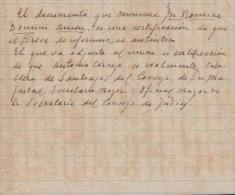 El documento que comienza In Nomine
Domini Amen, es una certificación de que
el Breve de referencia es autentico
El que va adjunto al mismo es certificación
de que Antonio Cornejo es realmente Caba
llero de Santiago, del Consejo de Su Ma
jestad, Secretario mayor y Oficial mayor de
la Secretaría del Consejo de Indias